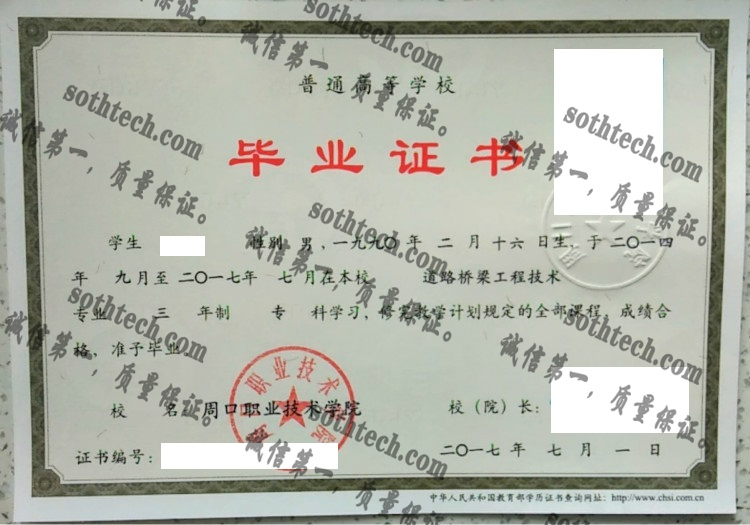 普通高等学校
毕业证书
学生 性别 男，一九九〇年 二 月 十六 日生，于 二〇一四
年 九 月至 二〇一七年 七 月在本校 道路桥梁工程技术
专业 三 年制 专 科学习，修完教学计划规定的全部课程，成绩合
格，准予毕业。
校 名：周口职业技术学院
校（院）长：
证书编号：
二〇一七年 七 月 一 日
中华人民共和国教育部学历证书查询网址：http://www.chsi.com.cn
周口职业技术学院
sothtech.com
诚信第一，质量保证。
sothtech.com
诚信第一，质量保证。
sothtech.com
诚信第一，质量保证。
sothtech.com
诚信第一，质量保证。
sothtech.com
诚信第一，质量保证。
sothtech.com
诚信第一，质量保证。
sothtech.com
诚信第一，质量保证。